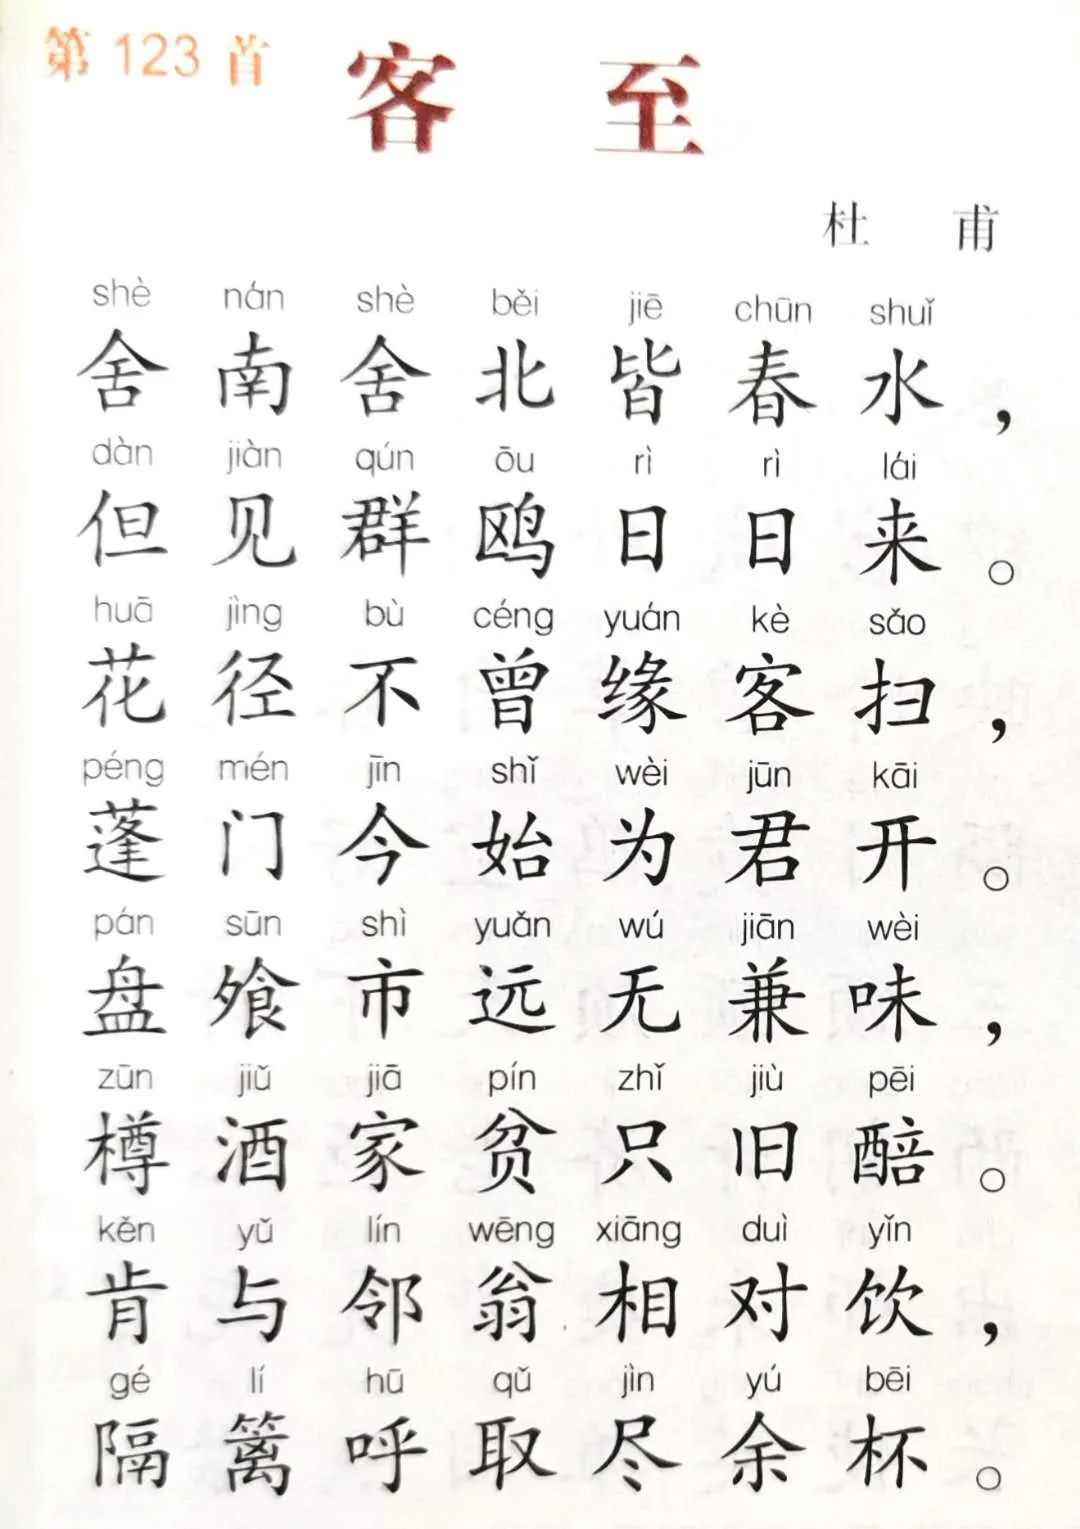 第 123 首
客 至
杜 甫
shè nán shè běi jiē chūn shuǐ
舍南舍北皆春水，
dàn jiàn qún ōu rì rì lái
但见群鸥日日来。
huā jìng bù céng yuán kè sǎo
花径不曾缘客扫，
péng mén jīn shǐ wèi jūn kāi
蓬门今始为君开。
pán sūn shì yuǎn wú jiān wèi
盘飧市远无兼味，
zūn jiǔ jiā pín zhǐ jiù pēi
樽酒家贫只旧醅。
kěn yǔ lín wēng xiāng duì yǐn
肯与邻翁相对饮，
gé lí hū qǔ jìn yú bēi
隔篱呼取尽余杯。